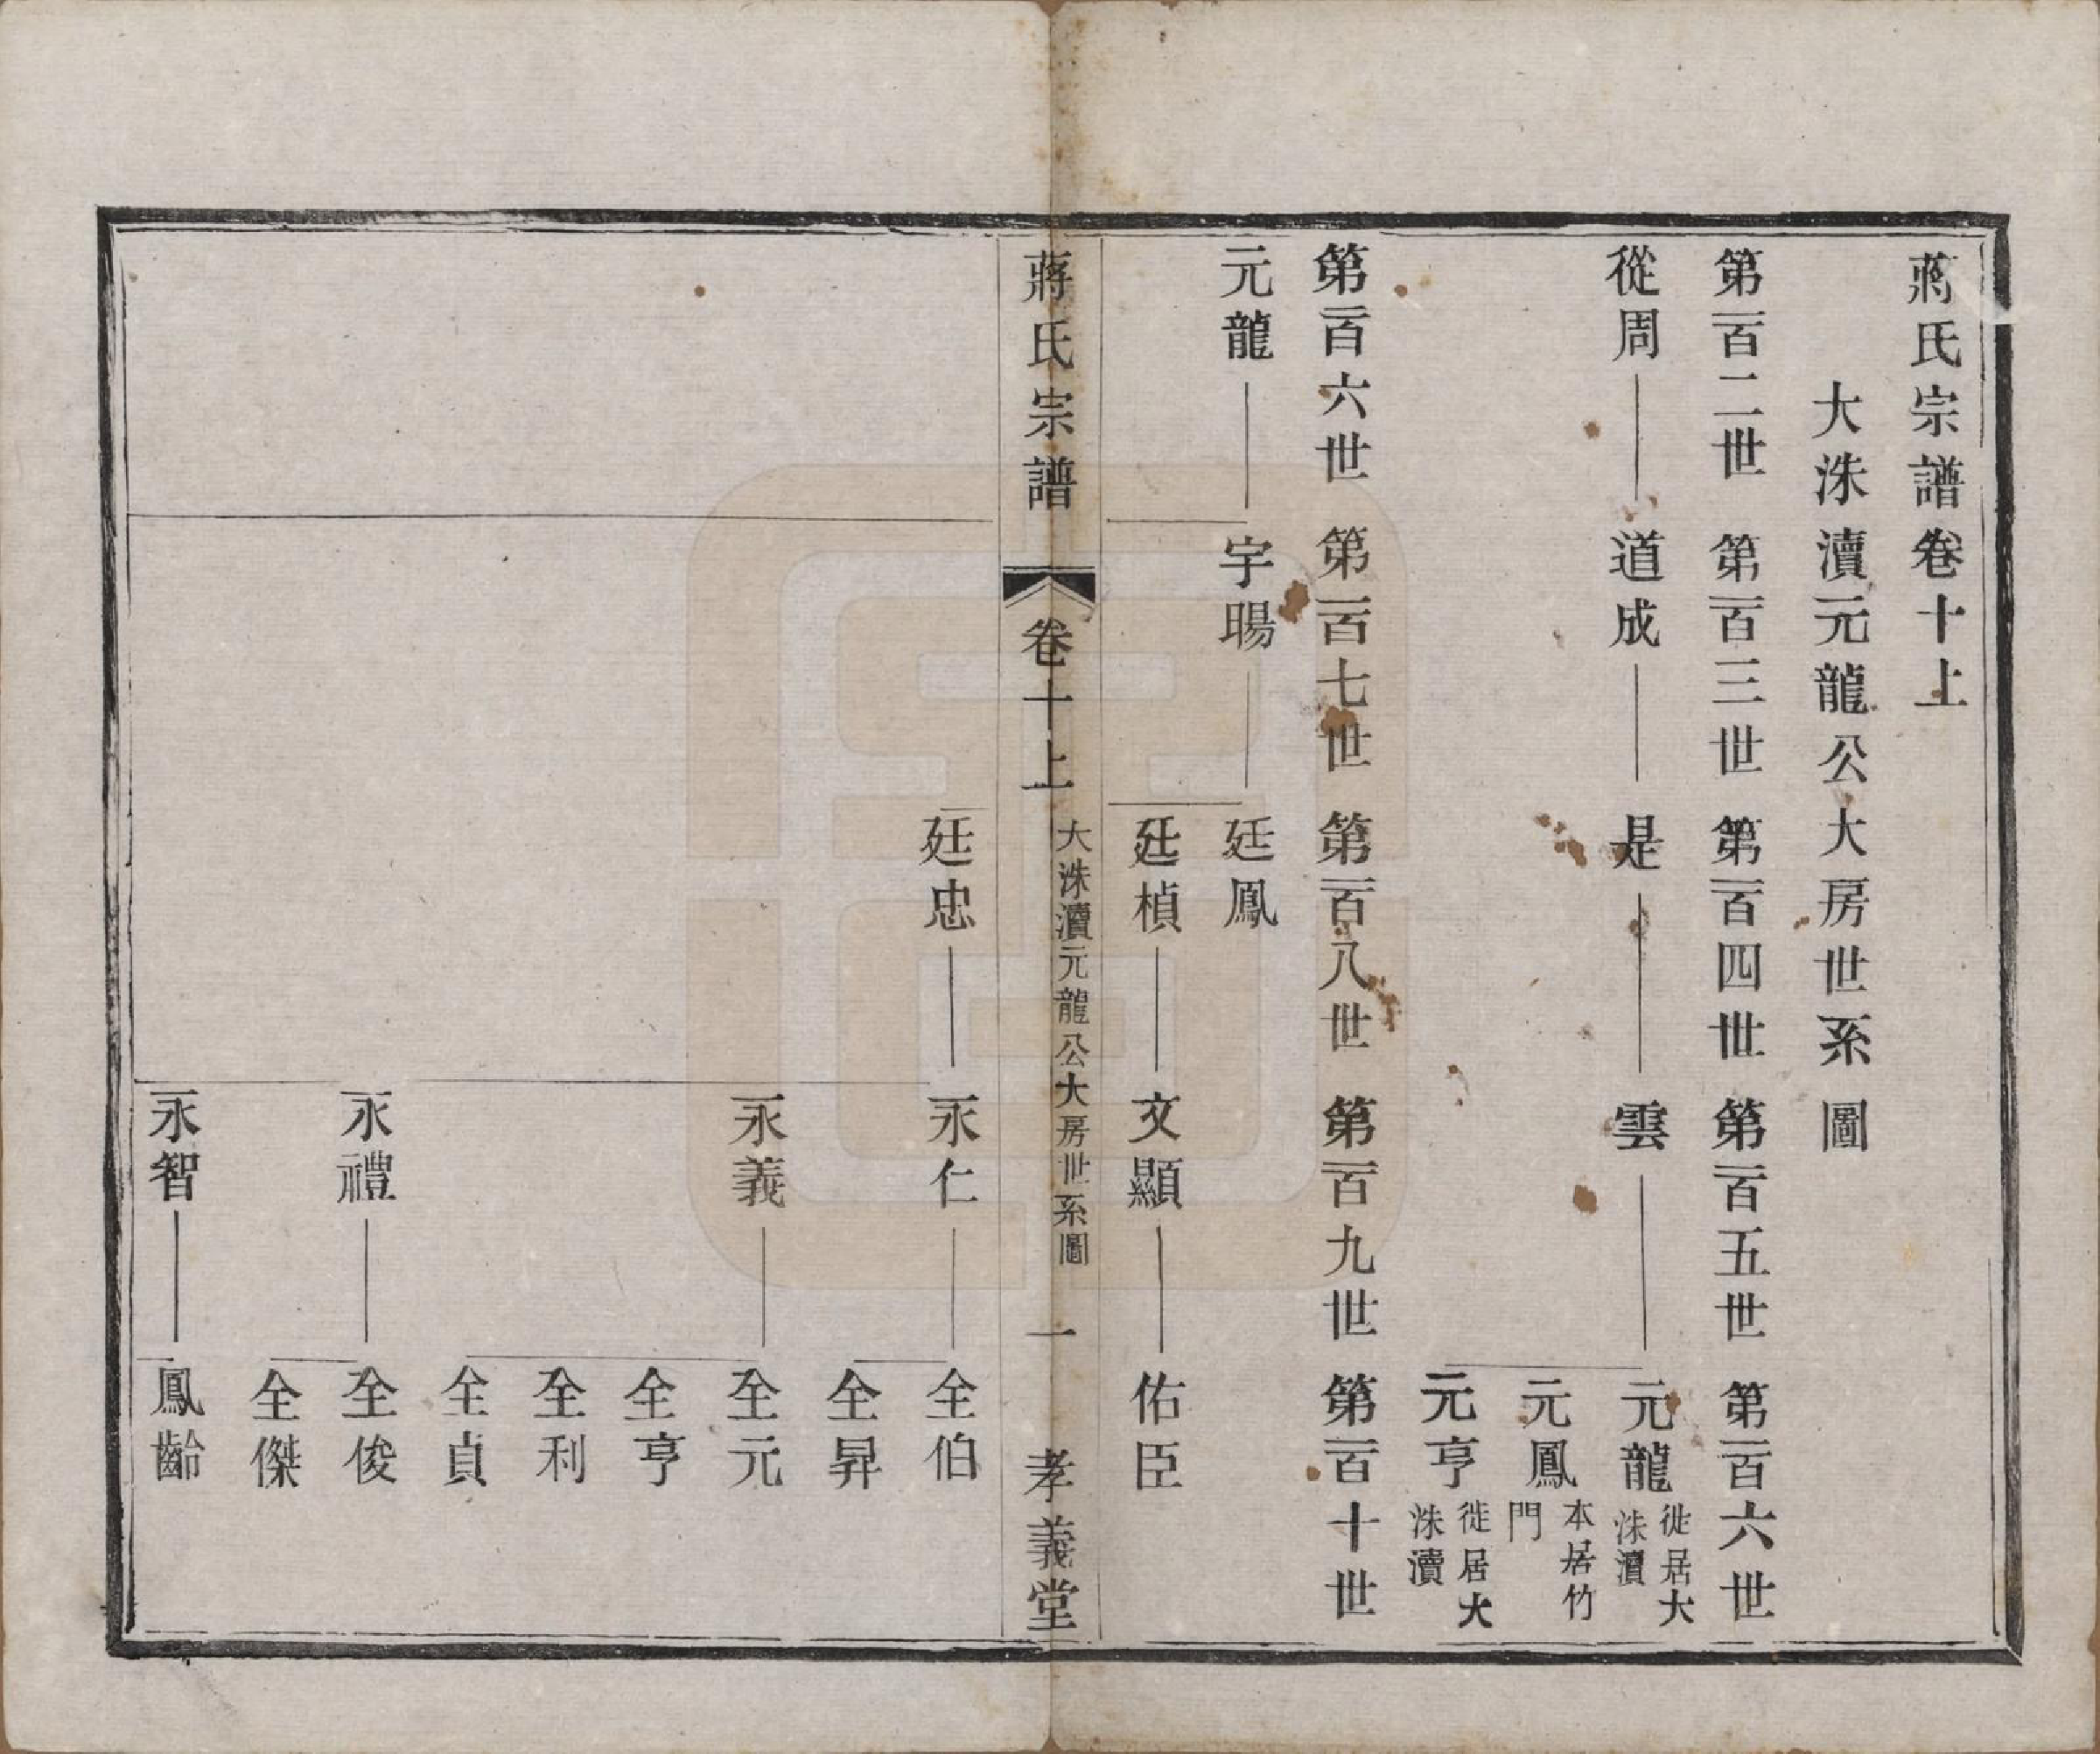 蔣氏宗譜卷十上
大洙瀆元龍公大房世系圖
第一百二世 第一百三世 第一百四世 第一百五世 第一百六世
從周 道成 是 雲 元龍 徙居大洙瀆
元鳳 本居竹門
元亨 徙居大洙瀆
第一百六世 第一百七世 第一百八世 第一百九世 第一百十世
元龍 宇暘 廷鳳
廷楨 文顯 佑臣
蔣氏宗譜 卷十上 大洙瀆元龍公大房世系圖 一 孝義堂
廷忠 永仁 全伯
全昇
永義 全元
全亨
全利
全貞
永禮 全俊
全傑
永智 鳳齡